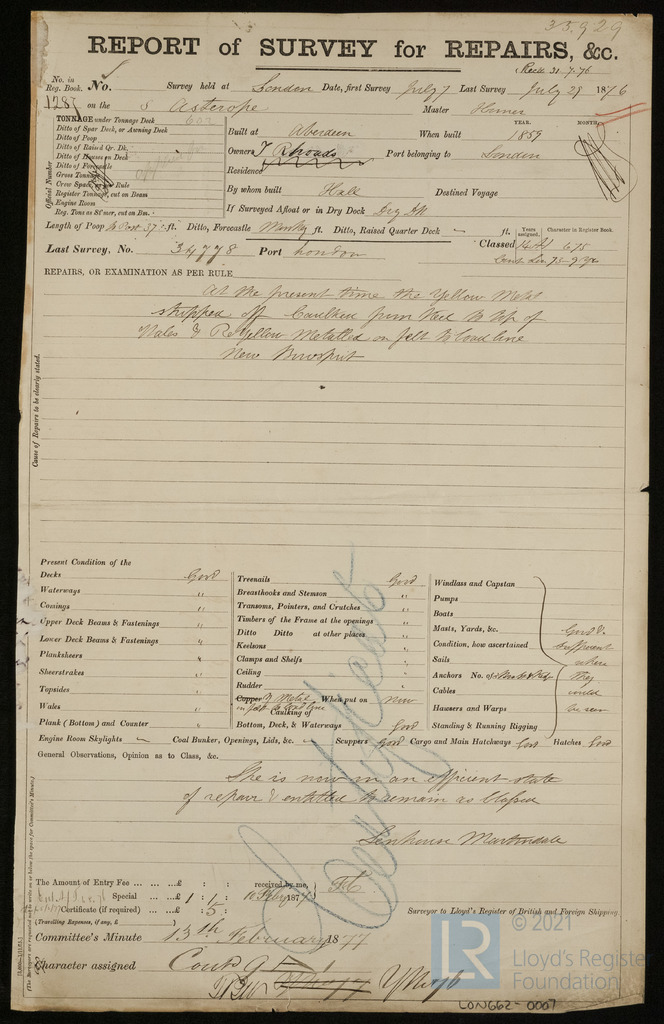 35,929
REPORT of SURVEY for REPAIRS, &c.
Recd 31.7.76
No. in Reg. Book. No. Survey held at London Date, first Survey July 7 Last Survey July 29 1876
1287 on the S Asterope Master
TONNAGE under Tonnage Deck
Ditto of Spar Deck, or Awning Deck
Ditto of Poop
Ditto of Raised Qr. Dk.
Ditto of Houses on Deck
Ditto of Forecastle
Gross Tonnage
Crew Space, Rule
Register Tonnage, cut on Beam
Engine Room
Reg. Tons as St'mer, cut on Bm.
Official Number
YEAR. MONTH.
Built at Aberdeen When built 1859
Owners T Rhoads Port belonging to London
Residence
By whom built Hall Destined Voyage
If Surveyed Afloat or in Dry Dock Dry Dk
Length of Poop 37 ft. Ditto, Forecastle ft. Ditto, Raised Quarter Deck ft.
Years assigned. Character in Register Book.
Last Survey, No. 34778 Port London Classed 14 A1 6.75
REPAIRS, OR EXAMINATION AS PER RULE
At the present time the Yellow Metal
stripped off Caulked from Keel to top of
Wales & ReYellow Metalled on felt to load line
New Bowsprit
Cause of Repairs to be clearly stated.
Present Condition of the
Decks Good
Waterways "
Comings "
Upper Deck Beams & Fastenings "
Lower Deck Beams & Fastenings "
Planksheers "
Sheerstrakes "
Topsides "
Wales "
Plank (Bottom) and Counter "
Treenails Good
Breasthooks and Stemson "
Transoms, Pointers, and Crutches "
Timbers of the Frame at the openings "
Ditto Ditto at other places "
Keelsons "
Clamps and Shelfs "
Ceiling "
Rudder "
Copper Y Metal When put on New
on felt to load line
Caulking of
Bottom, Deck, & Waterways Good
Windlass and Capstan
Pumps
Boats
Masts, Yards, &c.
Condition, how ascertained
Sails
Anchors No. of
Cables
Hawsers and Warps
Standing & Running Rigging
Good &
sufficient
where
They
could
be seen
Engine Room Skylights Coal Bunker, Openings, Lids, &c. Scuppers Good Cargo and Main Hatchways Good Hatches Good
General Observations, Opinion as to Class, &c.
She is now in an efficient state
of repair & entitled to remain as Classed
Senhouse Martindale
Certificate
The Amount of Entry Fee £ : : received by me,
Special £ 1 : 1 :
Certificate (if required) : 5 :
(Travelling Expenses, if any, £ )
Surveyor to Lloyd's Register of British and Foreign Shipping
Committee's Minute 13th February 1877
Character assigned
© 2021
LR
Lloyd's Register
Foundation
LON662-0007